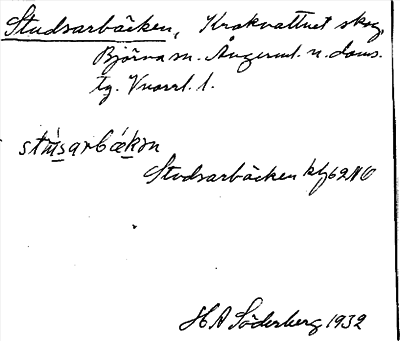 Studsarbäcken, Krokvattnet skog,
Björna sn. Ångerml. n. doms.
tg. Vnorrl. l.
stusarbækən
Studsarbäcken kbl 62 NO
H A Söderberg 1932